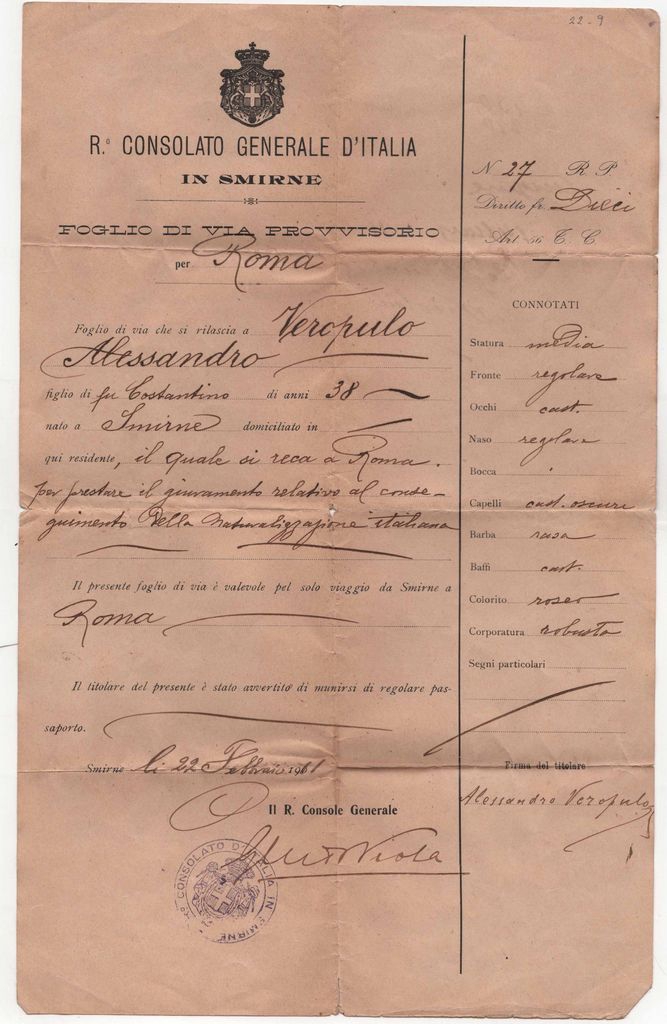 22-9
R.º CONSOLATO GENERALE D'ITALIA
IN SMIRNE
FOGLIO DI VIA PROVVISORIO
per Roma
Foglio di via che si rilascia a Veropulo
Alessandro
figlio di fu Costantino di anni 38
nato a Smirne domiciliato in
qui residente, il quale si reca a Roma
per prestare il giuramento relativo al conse-
guimento della naturalizzazione italiana
Il presente foglio di via è valevole pel solo viaggio da Smirne a
Roma
Il titolare del presente è stato avvertito di munirsi di regolare pas-
saporto.
Smirne li 22 Febbraio 1911
Il R. Console Generale
Viola
R.º CONSOLATO D'ITALIA IN SMIRNE
N 27 R P
Diritto fr. Dieci
Art 66 T. C.
CONNOTATI
Statura media
Fronte regolare
Occhi cast.
Naso regolare
Bocca
Capelli cast. oscuri
Barba rasa
Baffi cast.
Colorito roseo
Corporatura robusta
Segni particolari
Firma del titolare
Alessandro Veropulo